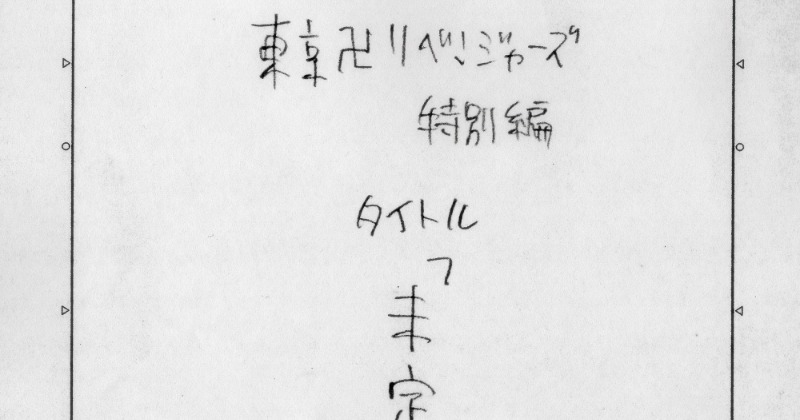 東京卍リベンジャーズ
特別編
タイトル
未定